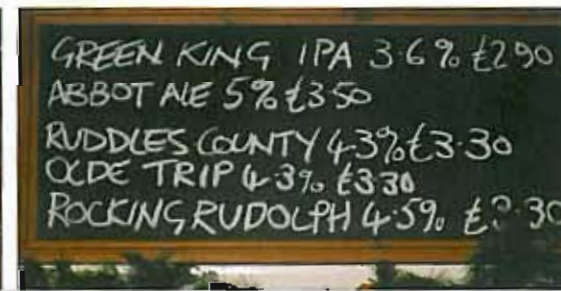 GREEN KING IPA 3.6% £2.90
ABBOT ALE 5% £3.50
RUDDLES COUNTY 4.3% £3.30
OLDE TRIP 4.3% £3.30
ROCKING RUDOLPH 4.5%